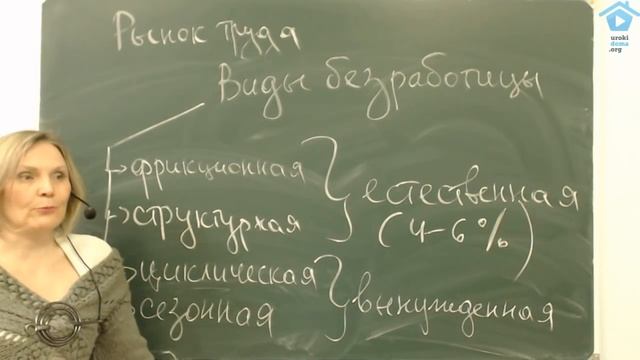 Рынок труда
Виды безработицы
фрикционная
структурная
естественная
(4-6%)
циклическая
сезонная
вынужденная
uroki
doma
.org